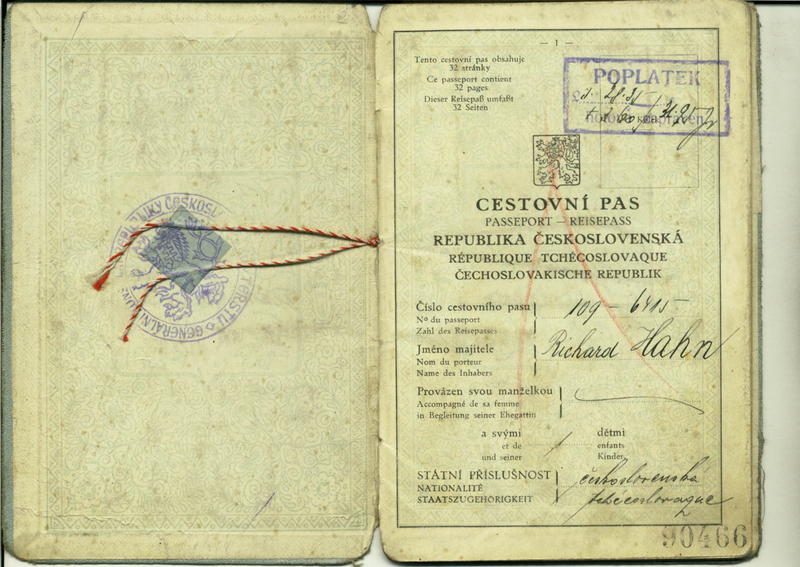 REPUBLIKY ČESKOSL
GENERÁLNÍ
— 1 —
Tento cestovní pas obsahuje
32 stránky
Ce passeport contient
32 pages
Dieser Reisepaß umfaßt
32 Seiten
POPLATEK
CESTOVNÍ PAS
PASSEPORT — REISEPASS
REPUBLIKA ČESKOSLOVENSKÁ
RÉPUBLIQUE TCHÉCOSLOVAQUE
ČECHOSLOVAKISCHE REPUBLIK
Číslo cestovního pasu 109 — 6415
No du passeport
Zahl des Reisepasses
Jméno majitele Richard Hahn
Nom du porteur
Name des Inhabers
Provázen svou manželkou
Accompagné de sa femme
in Begleitung seiner Ehegattin
a svými dětmi
et de enfants
und seiner Kinder
STÁTNÍ PŘÍSLUŠNOST československá
NATIONALITÉ tchécoslovaque
STAATSZUGEHÖRIGKEIT
90466